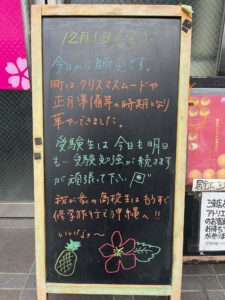 12月1日(金)
今日から師走です。
町はクリスマスムードや
正月準備等の時期となり
華やいできました。
受験生は今日も明日
も…受験勉強が続きます
が頑張って下さい
我が家の高校生はもうすぐ
修学旅行で沖縄へ!!
いいなぁ〜